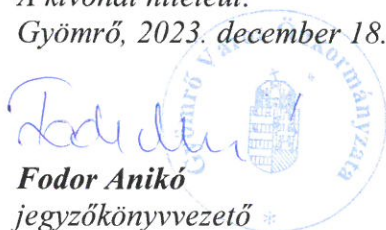 A kivonat hiteléül:
Gyömrő, 2023. december 18.
Gyömrő Város Önkormányzata
Fodor Anikó
jegyzőkönyvvezető